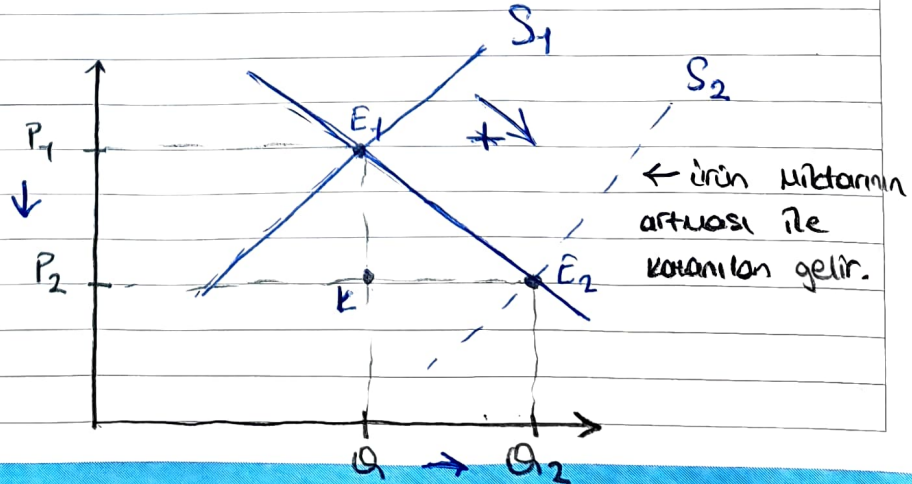 S1
S2
E1
+
P1
← ürün miktarının
artması ile
kazanılan gelir.
P2
K
E2
Q → Q2